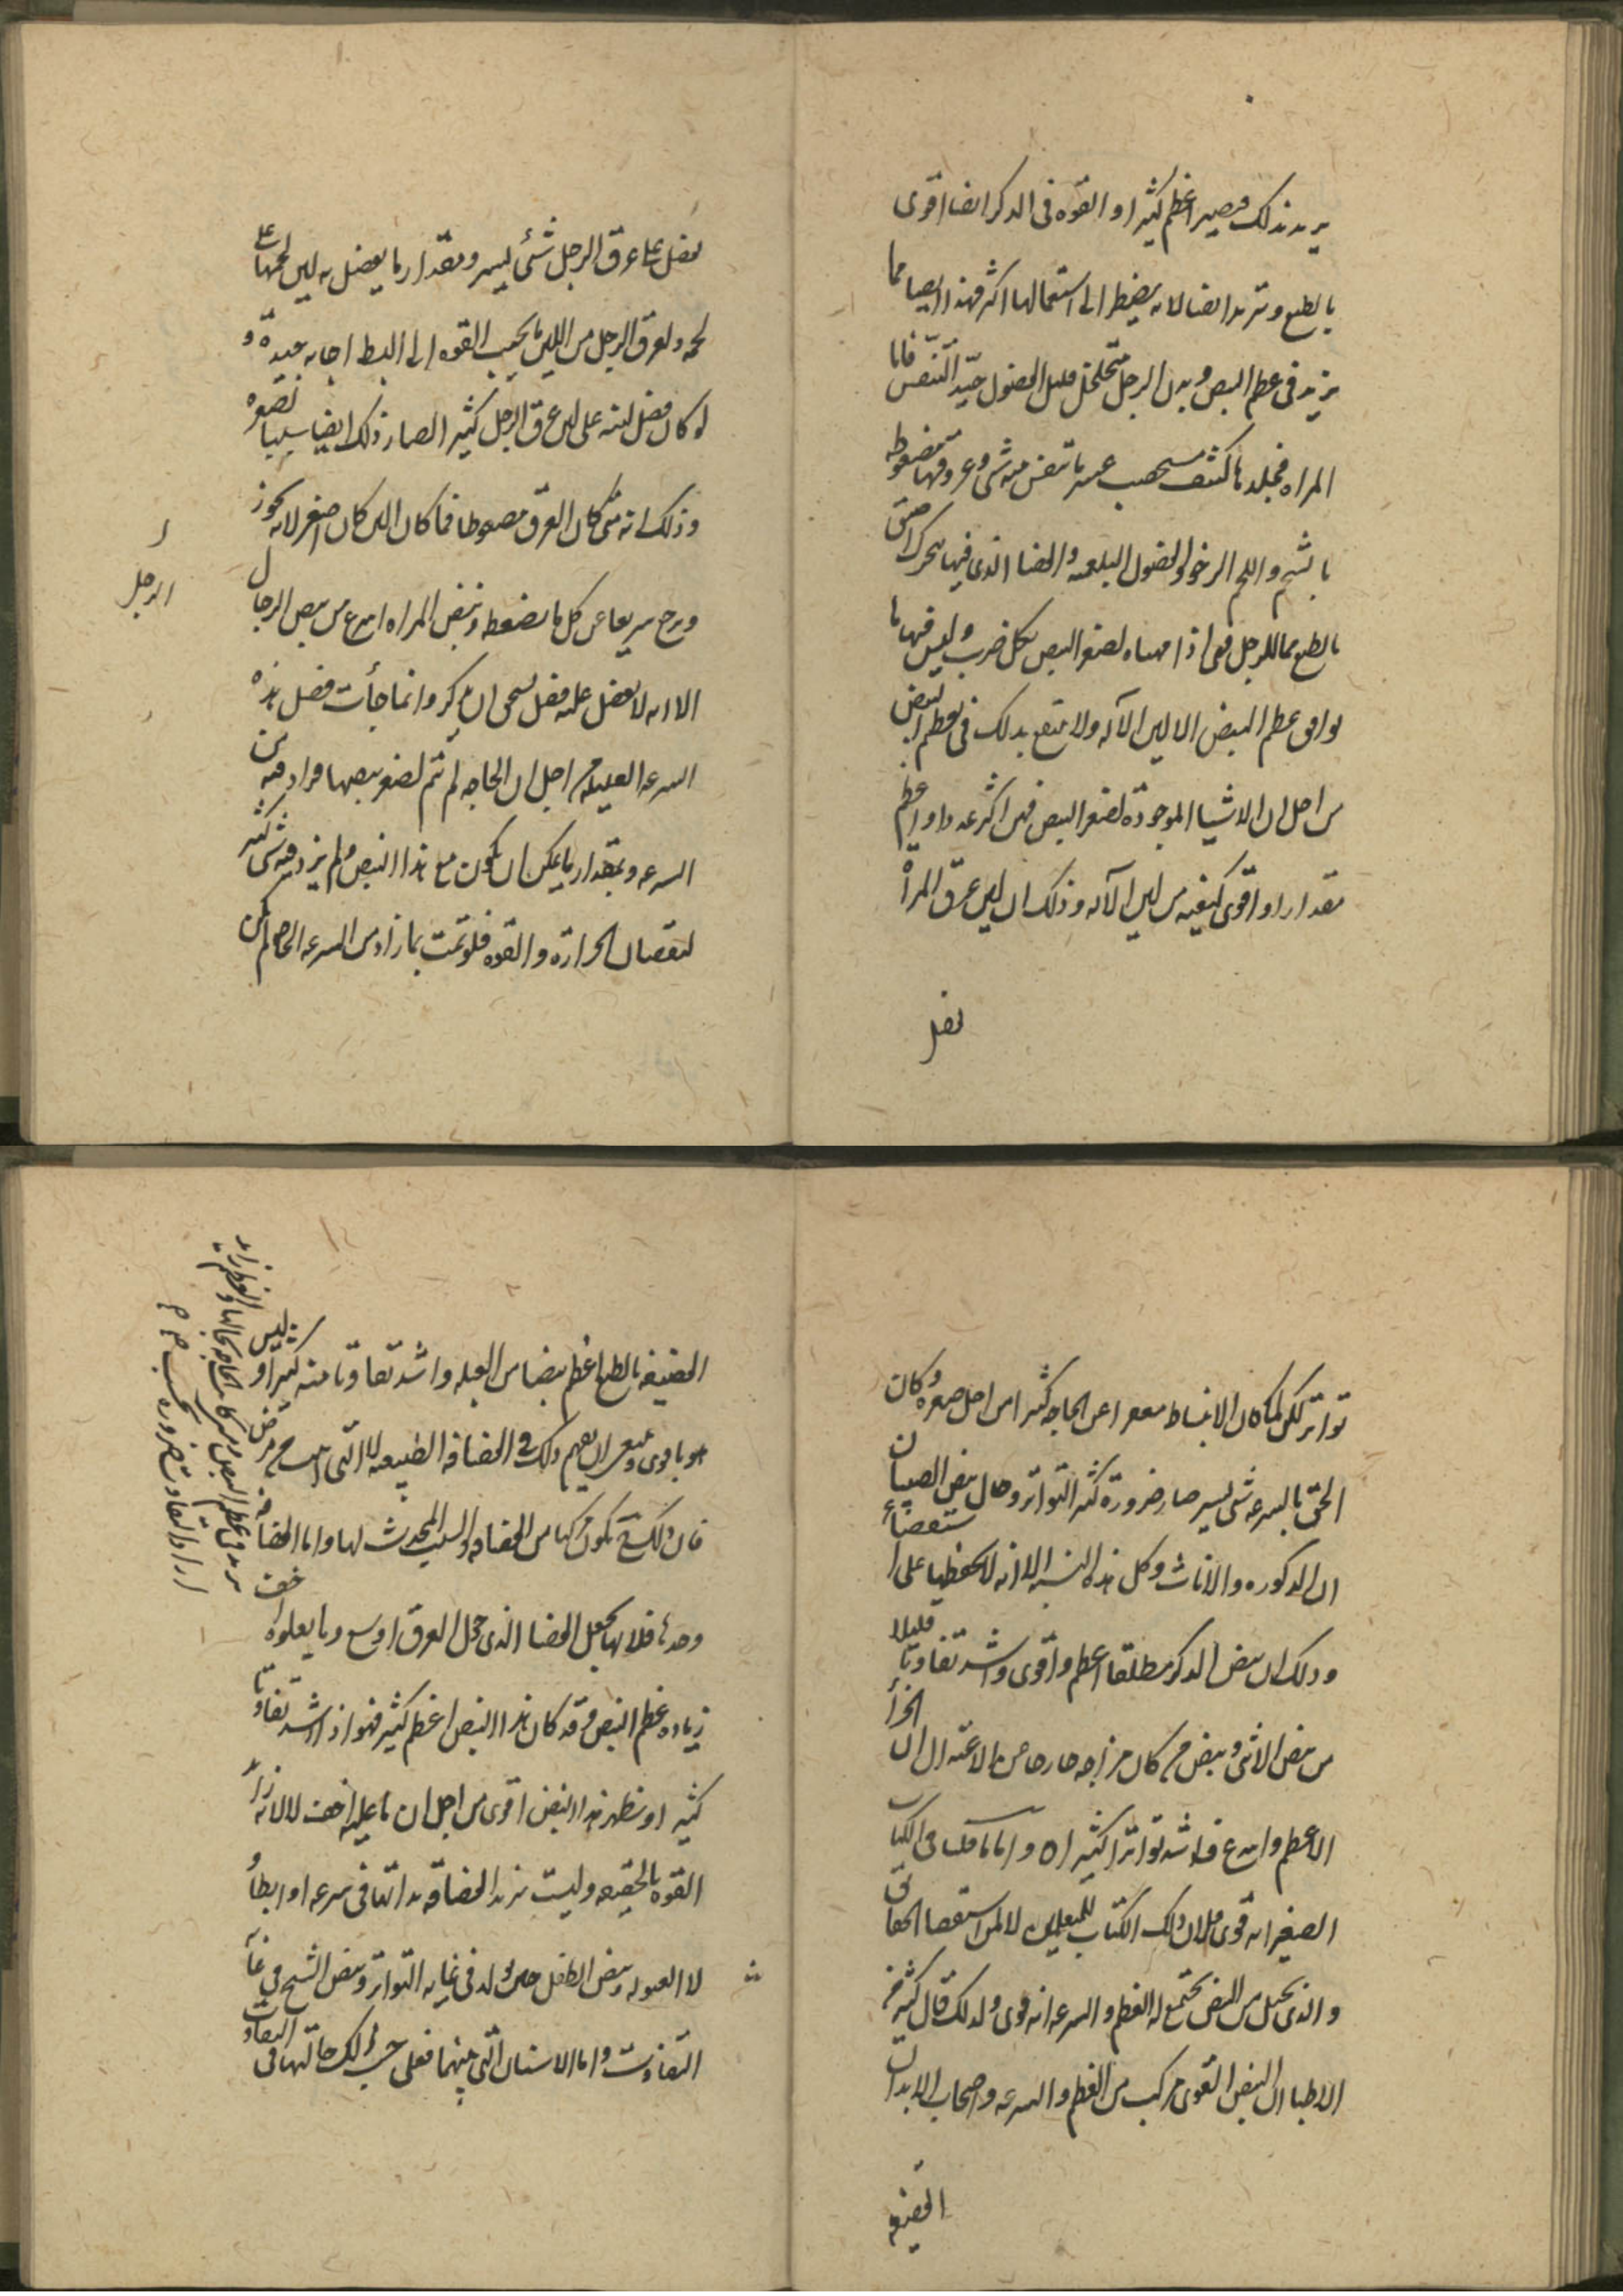 يريد بذلك فيصير اعظم كثيرا و القوه فى الذكر ايضا اقوى
بالطبع وتزيد ايضا لانه يضطر الى استعمالها اكثر فهذا ايضا مما
يزيد فى عظم النبض وبدن الرجل متخلخل قليل الفضول جيد التنفس فاما
المراه فجلدها كثيف عسر ما تنفس منه شى وعروقها مضغوطه
بالشحم واللحم الرخو والفضول البلغميه والفضا الذى فيها يتحرك اضيق
بالطبع مما للرجل فهى اذا مهياه لصغر النبض بكل ضرب وليس فيها ما
يوافق عظم النبض الا لين الآله ولا تنتفع بذلك فى عظم النبض
من اجل ان الاشيا الموجوده لصغر النبض فهى اكثر عددا واعظم
مقدارا و اقوى كيفيه من لين الآله وذلك ان لين عرق المرأه
يفضل
يفضل على عرق الرجل شئى يسير ومقدار ما يفضل به لين لحمها على
لحمه ولعرق الرجل من اللين ما يجيب القوه الى البسط اجابه جيده و
لو كان فضل لينه على لين عرق الرجل كثيرا لصار ذلك ايضا سببا لصغره
وذلك انه متى كان العرق مضغوطا فما كان الين كان اصغر لانه يجوز
ويرجع سريعا عن كل ما يضغطه ونبض المراه اسرع من نبض الرجال
ا
الرجل
الا انه لا يفضل عليه فضل يستحق ان يذكر وانما جأت فضل هذه
السرعه القليله من اجل ان الحاجه لم تتم لصغر نبضها فزاد فيه من
السرعه وبمقدار ما يمكن ان يكون مع هذا النبض ولم يزد فيه شى كثير
لنقصان الحرارة و القوه فلو تمت بما زاد من السرعه الحاجه لم يكن
تواتر لكن لما كان الانبساط مقصرا عن الحاجه كثيرا من اجل صغره وكان
الحق بالسرعه شى يسير صار ضرورة كثير التواتر وحال نبض الصبيان
ان الذكوره والاناث وكل هذه النسبه الا انه لا يحفظها على استقصاء
وذلك ان نبض الذكر مطلقا اعظم واقوى واشد تفاوتا قليلا
من نبض الانثى ونبض من كان مزاجه حارا خارجا من الاعتدال الى الحرأ
الاعظم واسرع واشد تواترا كثيرا ٥ واما ما قلنا فى الكتاب
الصغير انه قوى فلان ذلك الكتاب للمتعلمين لا لمن استقصا الحقائق
والذى يخيل من النبض يجتمع له العظم و السرعه انه قوى ولذلك قال كثير من
الاطبا ان النبض القوى مركب من العظم و السرعه واصحاب الابدان
القضيفه
القضيفه بالطبع اعظم نبضا من العبله واشد تفاوتا منه كثيرا وليس
هو باقوى لا بفهم ذلك فى القضافه الطبيعيه لا التى ليست من مرض
فان ذلك تكون مركبا من القضافه والسبب المحدث لها واما القضافه
وحدها فلانها تجعل الفضا الذى حول العرق اوسع وما يعلوه اخف
زياده عظم النبض و قد كان هذا النبض اعظم كثير فهو اذا اشد تفاوتا
كثيرا و نظهر هذا النبض اقوى من اجل ان ما عليه اخف لا لانه زاد
القوه بالحقيقه وليست تزيد القضافه بذاتها فى سرعه او ابطأ و
لا العبوله ونبض الطفل حين يولد فى غايه التواتر ونبض الشيخ فى غايه
التفاوت واما الاسنان التى بينهما فعلى حسب ذلك حالتها فى التفاوت